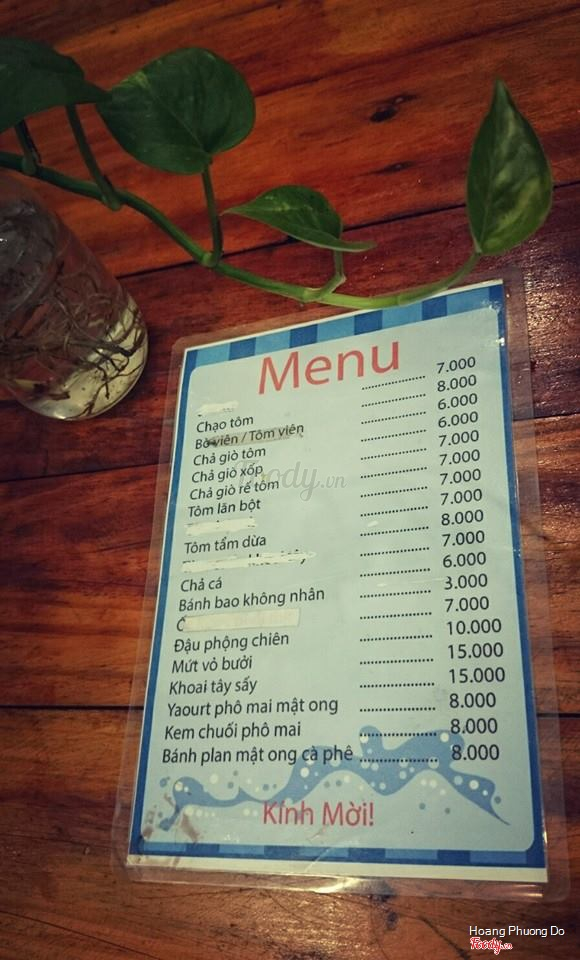 Menu
7.000
Chạo tôm 8.000
Bò viên / Tôm viên 6.000
Chả giò tôm 6.000
Chả giò xốp 7.000
Chả giò rế tôm 7.000
Tôm lăn bột 7.000
7.000
Tôm tẩm dừa 8.000
7.000
Chả cá 6.000
Bánh bao không nhân 3.000
7.000
Đậu phộng chiên 10.000
Mứt vỏ bưởi 15.000
Khoai tây sấy 15.000
Yaourt phô mai mật ong 8.000
Kem chuối phô mai 8.000
Bánh plan mật ong cà phê 8.000
Kính Mời!
Foody.vn
Hoang Phuong Do
Foody.vn